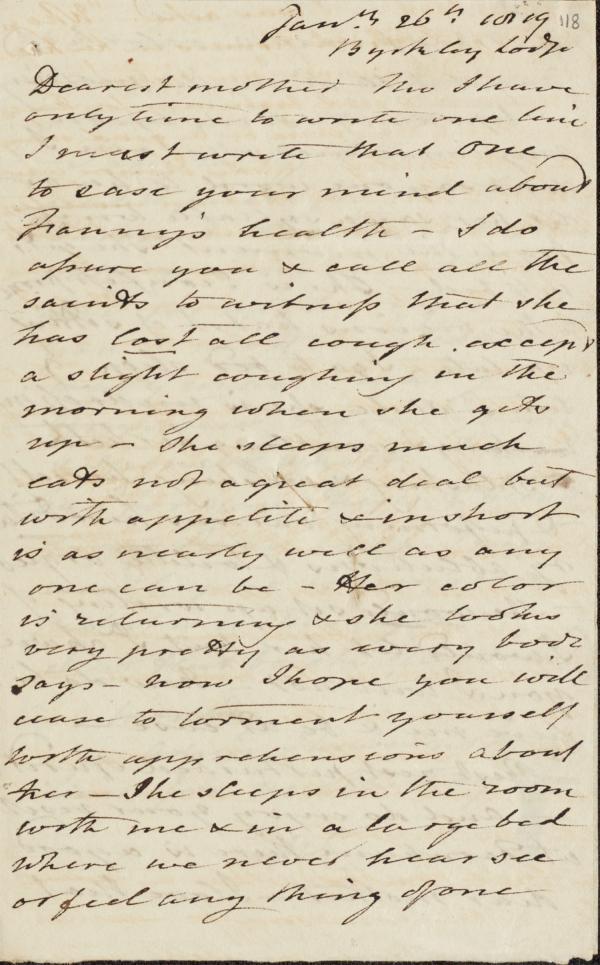 Jan.ry 26th 1819 118
Byrkley Lodge
Dearest mother tho I have
only time to write one line
I must write that one
to ease your mind about
Fanny's health – I do
assure you & call all the
saints to witness that she
has lost all cough except
a slight coughing in the
morning when she gets
up – She sleeps much
eats not a great deal but
with appetite & in short
is as nearly well as any
one can be – Her color
is returning & she looks
very pretty as every body
says – now I hope you will
cease to torment yourself
with apprehensions about
her – She sleeps in the room
with me & in a large bed
where we never hear see
or feel any thing of one